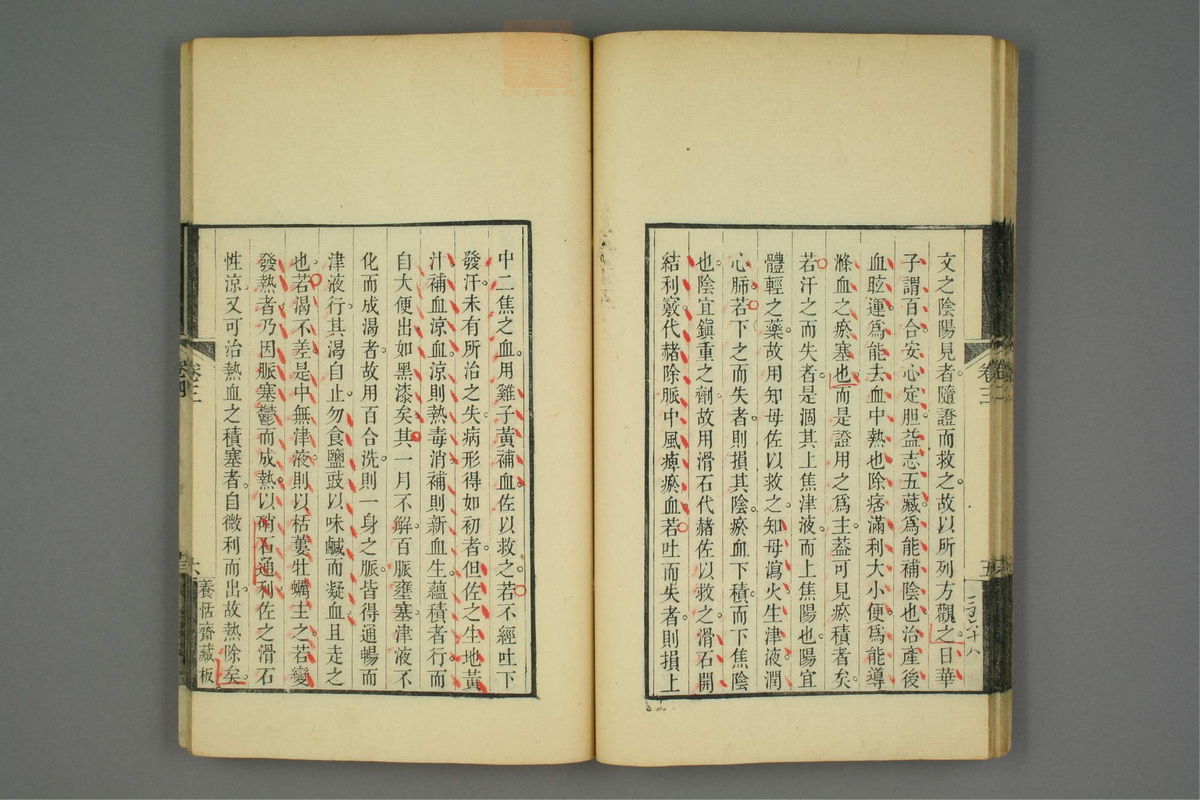 文之陰陽見者隨證而救之故以所列方觀之日華
子謂百合安心定胆益志五藏為能補陰也治產後
血眩運為能去血中熱也除痞滿利大小便為能導
滌血之瘀塞也而是證用之為主葢可見瘀積者矣
若汗之而失者是涸其上焦津液而上焦陽也陽宜
體輕之藥故用知母佐以救之知母瀉火生津液潤
心肺若下之而失者則損其陰瘀血下積而下焦陰
也陰宜鎮重之劑故用滑石代赭佐以救之滑石開
結利竅代赭除脈中風痺瘀血若吐而失者則損上
中二焦之血用雞子黃補血佐以救之若不經吐下
發汗未有所治之失病形得如初者但佐之生地黃
汁補血涼血涼則熱毒消補則新血生蘊積者行而
自大便出如黑漆矣其一月不解百脈壅塞津液不
化而成渴者故用百合洗則一身之脈皆得通暢而
津液行其渴自止勿食鹽豉以味鹹而凝血且走之
也若渴不差是中無津液則以栝蔞牡蠣主之若變
發熱者乃因脈塞鬱而成熱以硝石通利佐之滑石
性涼又可治熱血之積塞者自微利而出故熱除矣
卷三
六
養恬齋藏板